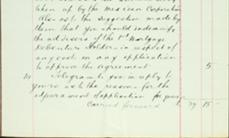 taken up by the Mexican Corporation
Also as to the suggestion made by
them that you should indemnify
the advisors of the 1st Mortgage
Debenture Holders in respect of
any costs in any application
to approve the agreement 5
Telegram to you in reply to
yours as to the reasons for the
of application
Carried forward 79 15